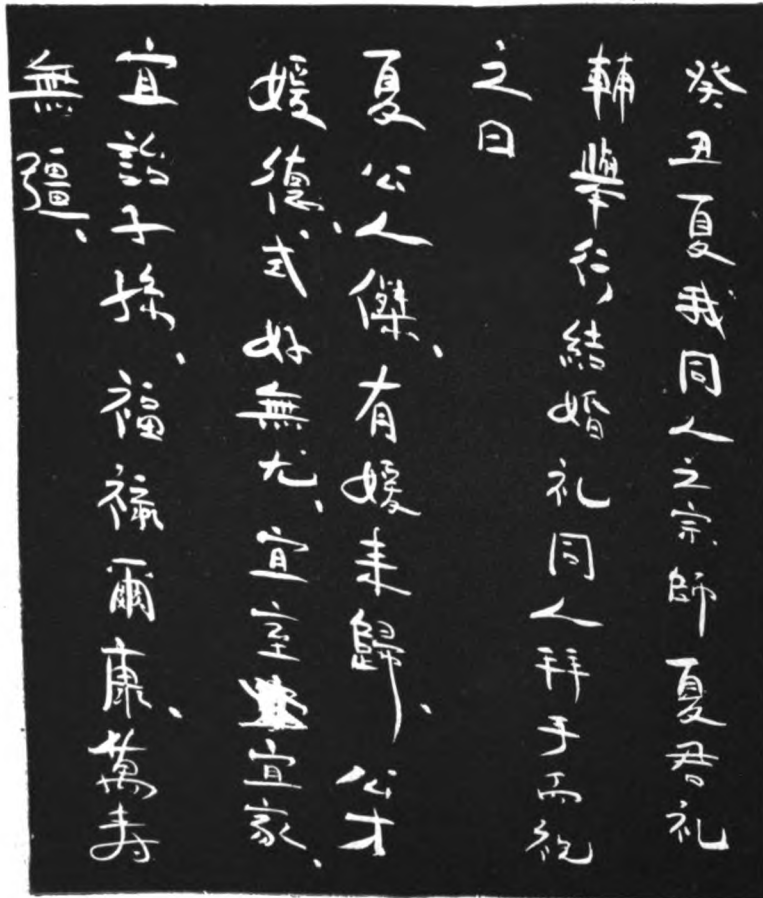 癸丑夏我同人之宗師夏君礼
輔舉行結婚礼同人拜手而祝
之曰
夏公人傑、有媛来歸、公才
媛德、式好無尤、宜室宜家、
宜爾子孫、福祿爾康、萬寿
無彊、